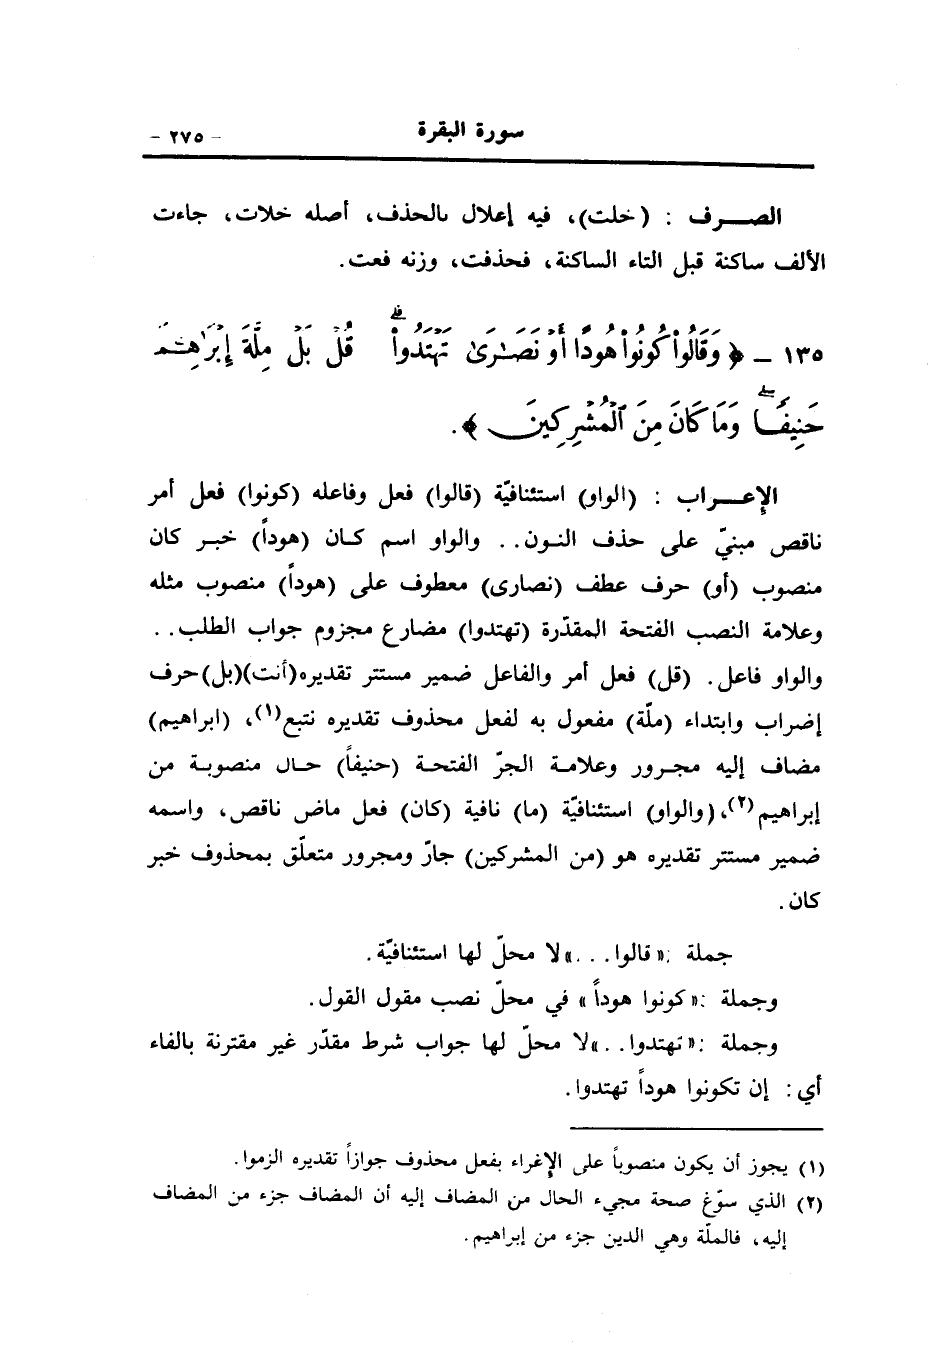 سورة البقرة - ٢٧٥ -
الصـــرف : (خلت)، فيه إعلال بالحذف، أصله خلات، جاءت
الألف ساكنة قبل التاء الساكنة، فحذفت، وزنه فعت.
١٣٥ - ﴿ وَقَالُوا۟ كُونُوا۟ هُودًا أَوْ نَصَـٰرَىٰ تَهْتَدُوا۟ ۗ قُلْ بَلْ مِلَّةَ إِبْرَٰهِـۧمَ
حَنِيفًا ۖ وَمَا كَانَ مِنَ ٱلْمُشْرِكِينَ ﴾.
الإعـــراب : (الواو) استئنافيّة (قالوا) فعل وفاعله (كونوا) فعل أمر
ناقص مبنيّ على حذف النون.. والواو اسم كان (هوداً) خبر كان
منصوب (أو) حرف عطف (نصارى) معطوف على (هوداً) منصوب مثله
وعلامة النصب الفتحة المقدّرة (تهتدوا) مضارع مجزوم جواب الطلب..
والواو فاعل. (قل) فعل أمر والفاعل ضمير مستتر تقديره(أنت)(بل)حرف
إضراب وابتداء (ملّة) مفعول به لفعل محذوف تقديره نتبع(١)، (ابراهيم)
مضاف إليه مجرور وعلامة الجرّ الفتحة (حنيفاً) حال منصوبة من
إبراهيم(٢)، (والواو) استئنافيّة (ما) نافية (كان) فعل ماض ناقص، واسمه
ضمير مستتر تقديره هو (من المشركين) جارّ ومجرور متعلّق بمحذوف خبر
كان.
جملة :«قالوا...»لا محلّ لها استئنافيّة.
وجملة :«كونوا هوداً» في محلّ نصب مقول القول.
وجملة :«تهتدوا..»لا محلّ لها جواب شرط مقدّر غير مقترنة بالفاء
أي: إن تكونوا هوداً تهتدوا.
(١) يجوز أن يكون منصوباً على الإغراء بفعل محذوف جوازاً تقديره الزموا.
(٢) الذي سوّغ صحة مجيء الحال من المضاف إليه أن المضاف جزء من المضاف
إليه، فالملّة وهي الدين جزء من إبراهيم.